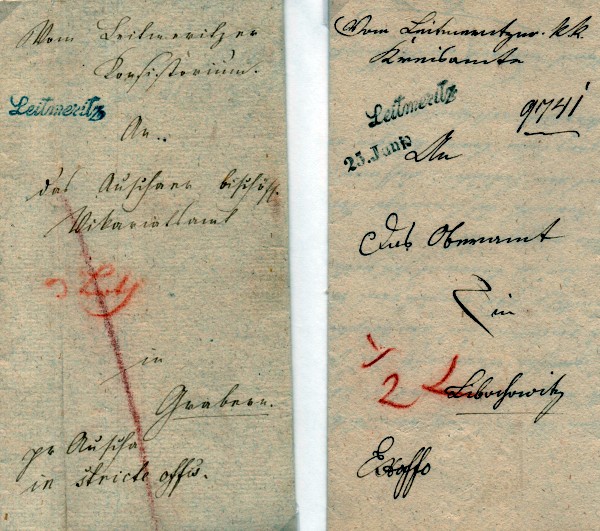 Vom Leitmeritzer
Konsistorium.
Leitmeritz
An
das Auschaer bischöfl.
Vikariatsamt
in
Grabern.
pr Auscha
in stricte offs.
Vom Leitmeritzer k.k.
Kreisamte
Leitmeritz
25. Juni
9741
An
Das Oberamt
in
1/2
Libochowitz
Exoffo